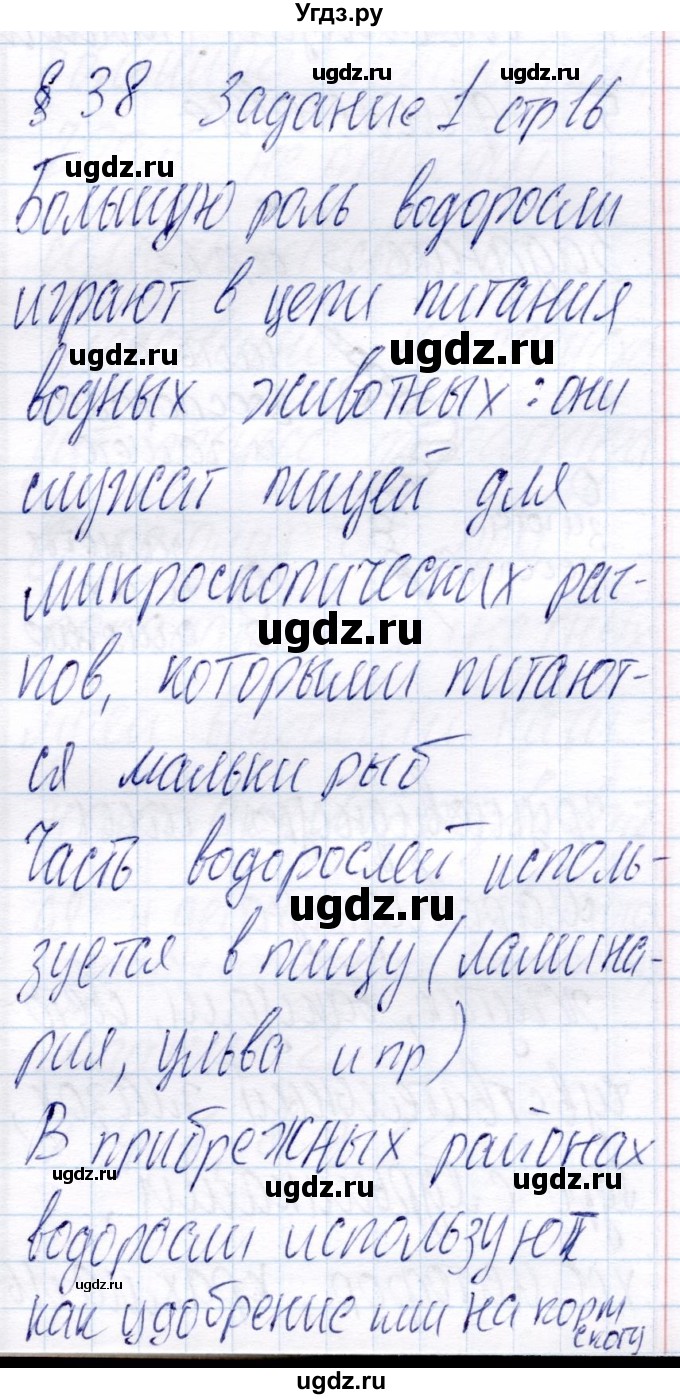 Угдз.ру
§ 38 Задание 1 стр 16
Большую роль водоросли
играют в цепи питания
водных животных: они
служат пищей для
микроскопических рач-
пов, которыми питают-
ся мальки рыб
Часть водорослей исполь-
зуется в пищу (ламина-
рия, ульва и пр)
В прибрежных районах
водоросли используют
как удобрение или на корм
скоту
ugdz.ru
ugdz.ru
ugdz.ru
ugdz.ru
ugdz.ru
ugdz.ru
ugdz.ru
ugdz.ru
ugdz.ru
ugdz.ru
ugdz.ru